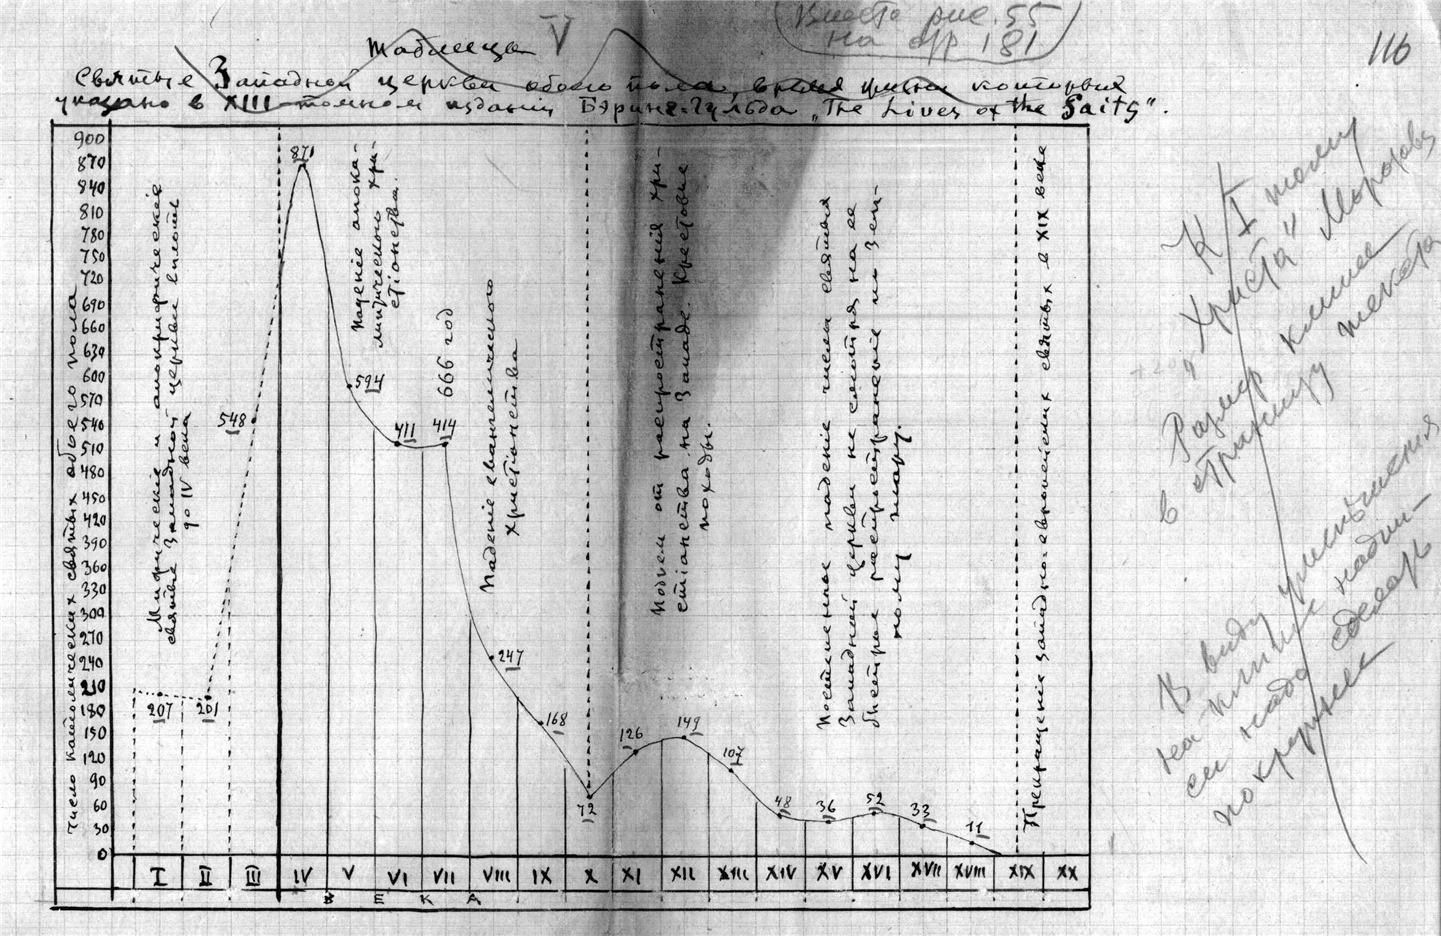 Вместо рис. 55
на стр 181
116
Таблица V
Святые Западной церкви обоего пола, время жизни которых
указано в XIII-томном издании Бэринг-Гульда „The Lives of the Saits".
Число католических святых обоего пола
900
870
840
810
780
750
720
690
660
630
600
570
540
510
480
450
420
390
360
330
300
270
240
210
180
150
120
90
60
30
0
Мифические и апокрифические
святые Западной церкви вплоть
до IV века
207
201
548
871
Падение апока-
липтического хри-
стіанства.
594
411
414
666 год
Паденіе евангелического
христіанства
247
168
72
Подъем от распространенія хри-
стіанства на Западе. Крестовые
походы.
126
149
107
Постепенное паденіе числа святых
Западной церкви не смотря на ее
быстрое распространеніе по зем-
ному шару.
48
36
52
33
11
Прекращеніе западно-европейских святых в XIX веке
I II III IV V VI VII VIII IX X XI XII XIII XIV XV XVI XVII XVIII XIX XX
В Е К А
К I тому
„Христа" Морозова
Размер клише
в страницу текста
В виду уменьшения
на клише надпи-
си надо сделать
покрупнее